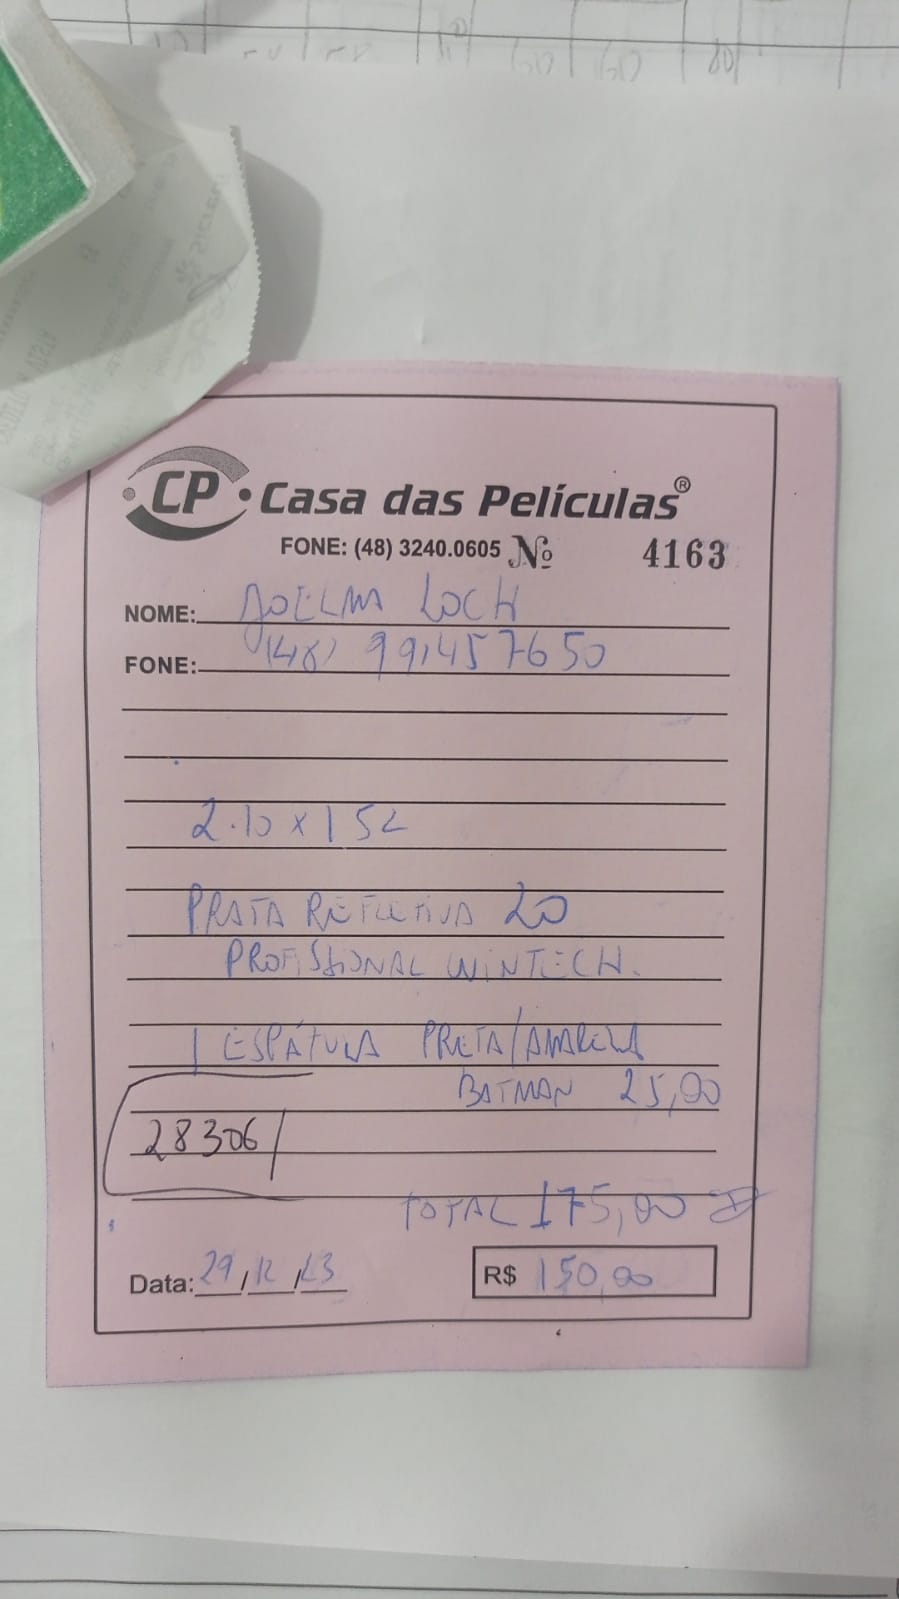 CP Casa das Películas®
FONE: (48) 3240.0605 Nº 4163
NOME: JOELMA LOCH
FONE: (48) 991457650
2.10 x 152
PRATA REFLETIVA 20
PROFISSIONAL WINTECH.
1 ESPÁTULA PRETA/AMARELA
BATMAN 25,00
28306
TOTAL 175,00
Data: 29/12/23 R$ 150,00